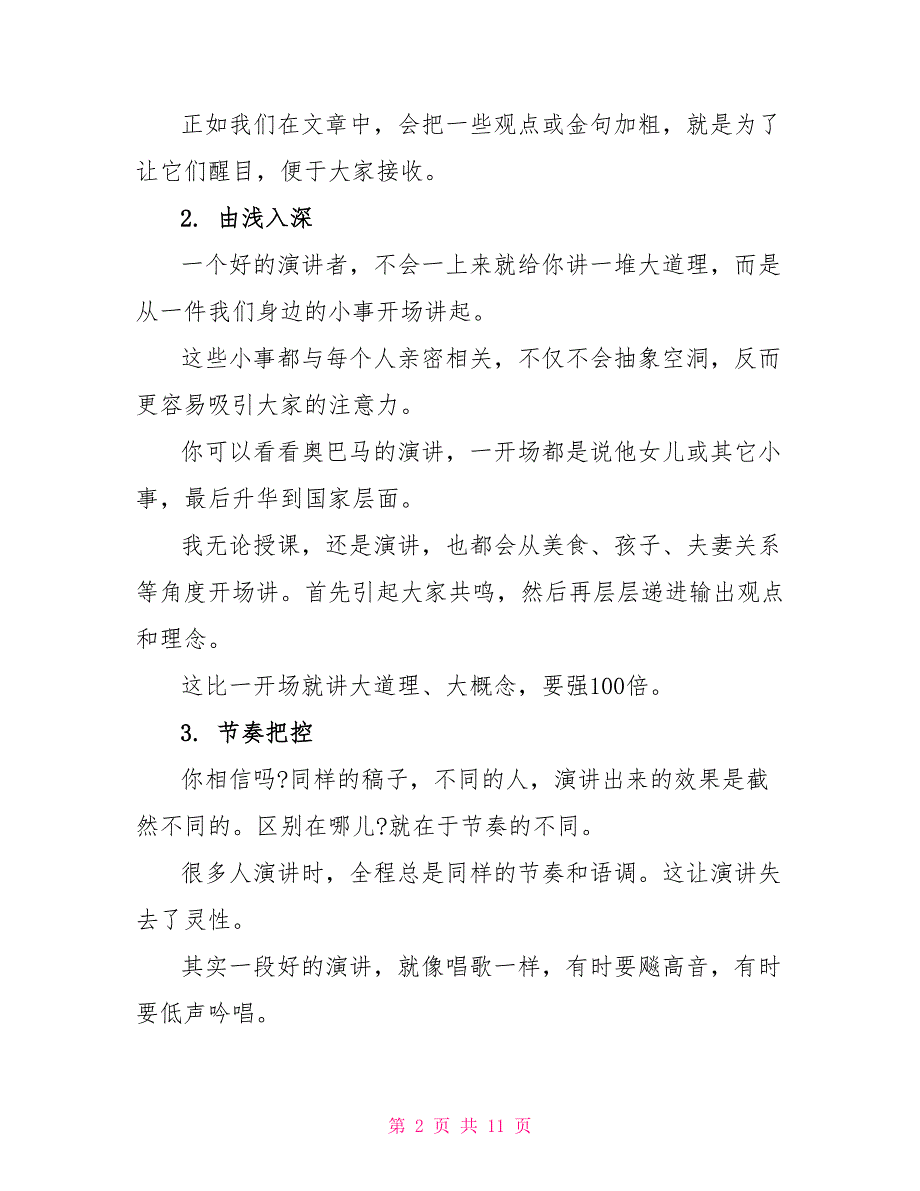 正如我们在文章中，会把一些观点或金句加粗，就是为了
让它们醒目，便于大家接收。
2. 由浅入深
一个好的演讲者，不会一上来就给你讲一堆大道理，而是
从一件我们身边的小事开场讲起。
这些小事都与每个人亲密相关，不仅不会抽象空洞，反而
更容易吸引大家的注意力。
你可以看看奥巴马的演讲，一开场都是说他女儿或其它小
事，最后升华到国家层面。
我无论授课，还是演讲，也都会从美食、孩子、夫妻关系
等角度开场讲。首先引起大家共鸣，然后再层层递进输出观点
和理念。
这比一开场就讲大道理、大概念，要强100倍。
3. 节奏把控
你相信吗?同样的稿子，不同的人，演讲出来的效果是截
然不同的。区别在哪儿?就在于节奏的不同。
很多人演讲时，全程总是同样的节奏和语调。这让演讲失
去了灵性。
其实一段好的演讲，就像唱歌一样，有时要飚高音，有时
要低声吟唱。
第 2 页 共 11 页